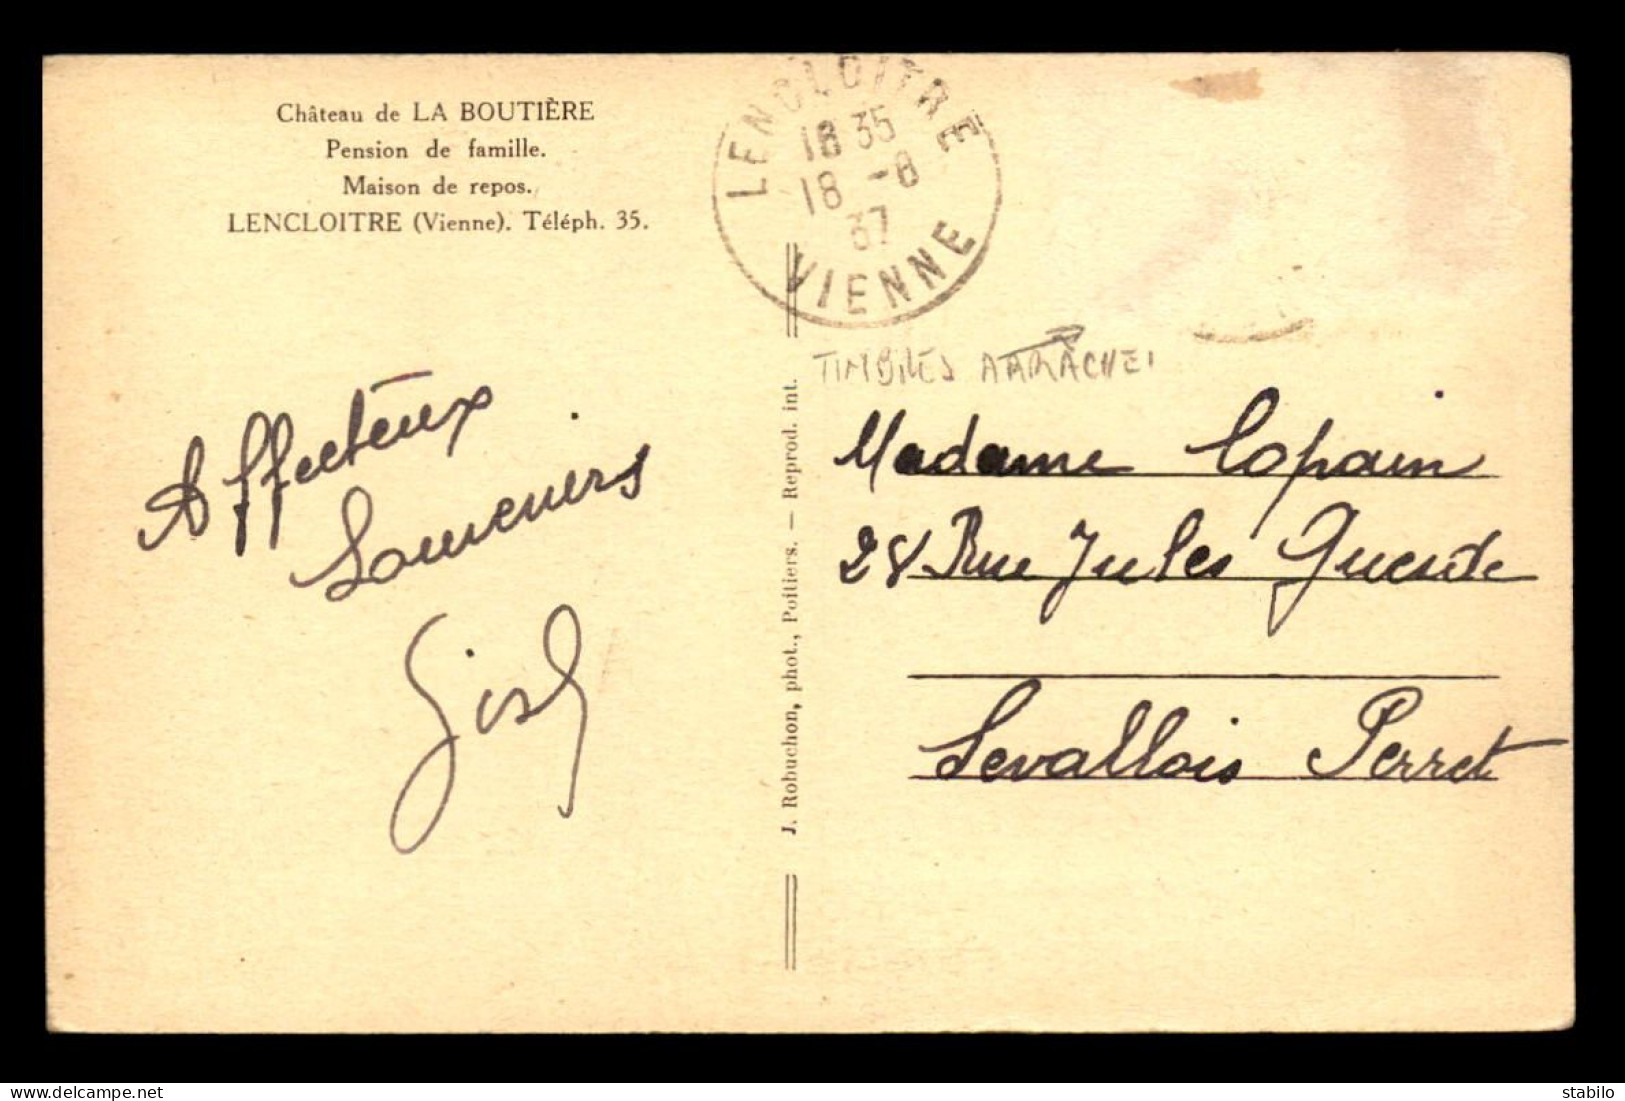 Château de LA BOUTIÈRE
Pension de famille.
Maison de repos.
LENCLOITRE (Vienne). Téléph. 35.
LENCLOITRE
18 35
18 -8
37
VIENNE
TIMBRES ARRACHEI
Affecteux
Souvenirs
J. Robuchon, phot., Poitiers. — Reprod. int.
Madame Copain
28 Rue Jules Guesde
Levallois Perret
delcampe.net
stabilo